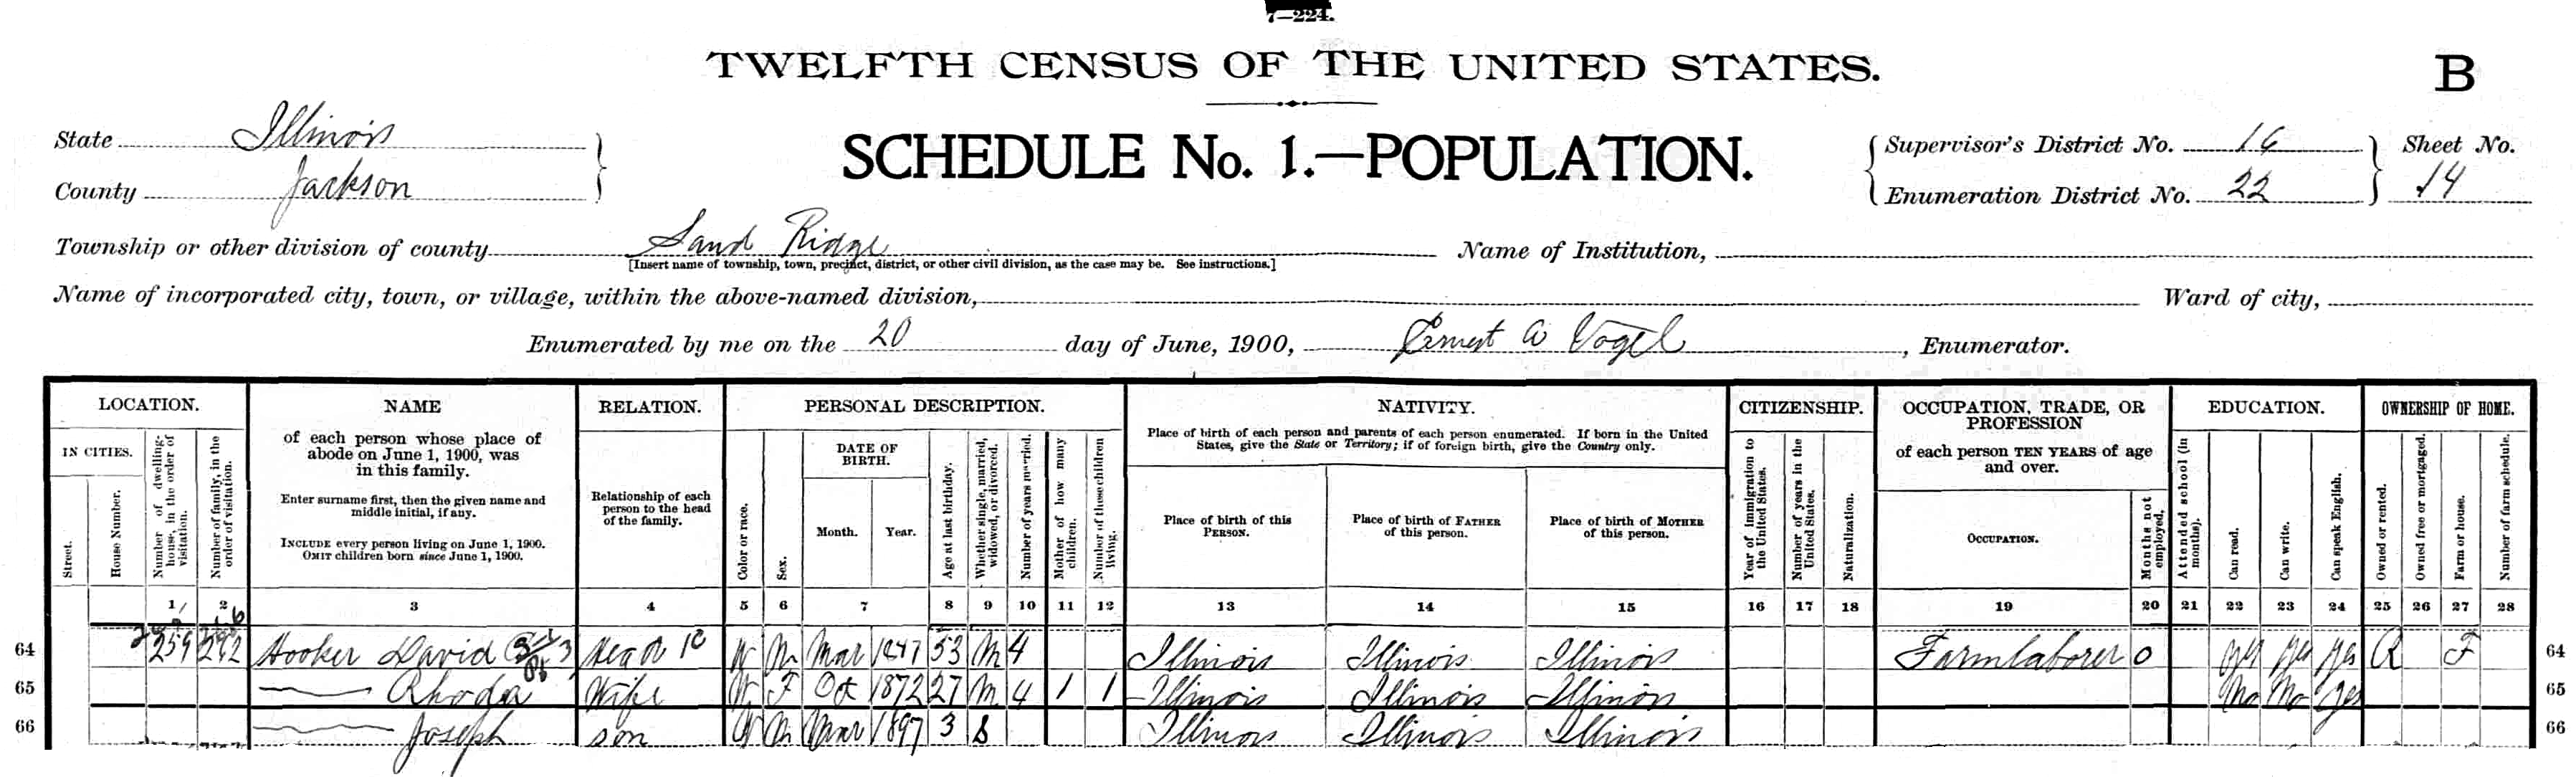 7—224.
TWELFTH CENSUS OF THE UNITED STATES.
B
State Illinois
County Jackson
SCHEDULE No. 1.—POPULATION.
Supervisor's District No. 16
Enumeration District No. 22
Sheet No.
14
Township or other division of county Sand Ridge
[Insert name of township, town, precinct, district, or other civil division, as the case may be. See instructions.]
Name of Institution,
Name of incorporated city, town, or village, within the above-named division,
Ward of city,
Enumerated by me on the 20 day of June, 1900, Ernest A Vogel, Enumerator.
LOCATION.
IN CITIES.
Street.
House Number.
Number of dwelling-house, in the order of visitation.
Number of family, in the order of visitation.
NAME
of each person whose place of abode on June 1, 1900, was in this family.
Enter surname first, then the given name and middle initial, if any.
INCLUDE every person living on June 1, 1900.
OMIT children born since June 1, 1900.
RELATION.
Relationship of each person to the head of the family.
PERSONAL DESCRIPTION.
Color or race.
Sex.
DATE OF BIRTH.
Month.
Year.
Age at last birthday.
Whether single, married, widowed, or divorced.
Number of years married.
Mother of how many children.
Number of these children living.
NATIVITY.
Place of birth of each person and parents of each person enumerated. If born in the United States, give the State or Territory; if of foreign birth, give the Country only.
Place of birth of this PERSON.
Place of birth of FATHER of this person.
Place of birth of MOTHER of this person.
CITIZENSHIP.
Year of immigration to the United States.
Number of years in the United States.
Naturalization.
OCCUPATION, TRADE, OR PROFESSION
of each person TEN YEARS of age and over.
OCCUPATION.
Months not employed.
EDUCATION.
Attended school (in months).
Can read.
Can write.
Can speak English.
OWNERSHIP OF HOME.
Owned or rented.
Owned free or mortgaged.
Farm or house.
Number of farm schedule.
1 2 3 4 5 6 7 8 9 10 11 12 13 14 15 16 17 18 19 20 21 22 23 24 25 26 27 28
64 259 292 Hooker David Head W M Mar 1847 53 M 4 Illinois Illinois Illinois Farmlaborer 0 yes yes yes R F 64
65 —— Rhoda Wife W F Oct 1872 27 M 4 1 1 Illinois Illinois Illinois No No yes 65
66 —— Joseph son W M Mar 1897 3 S Illinois Illinois Illinois 66